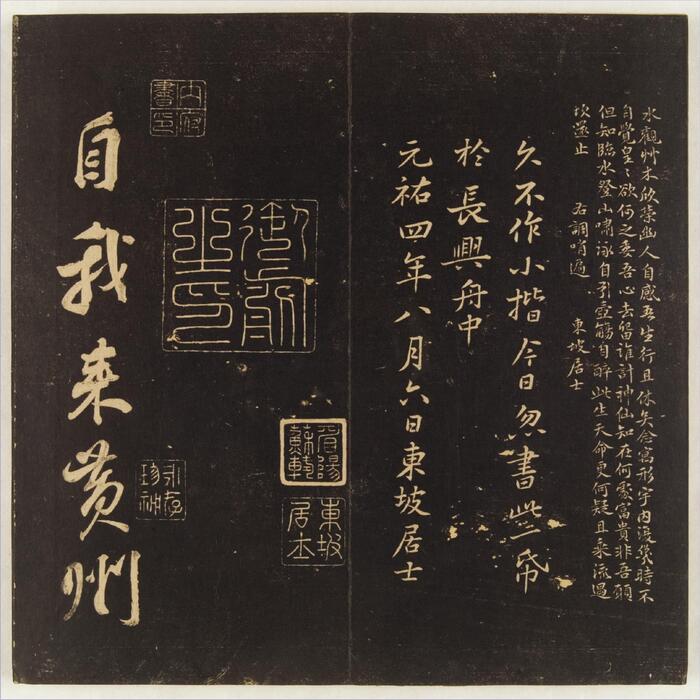 水觀艸木欣榮幽人自感吾生行且休矣念寓形宇內復幾時不
自覺皇〻欲何之委吾心去留誰計神仙知在何處富貴非吾願
但知臨水登山嘯詠自引壺觴自醉此生天命更何疑且乘流遇
坎還止　右調哨遍　東坡居士
久不作小揩今日忽書此一帋
於長興舟中
元祐四年八月六日東坡居士
眉陽
蘇軾
東坡
居士
御府
之印
內府
書印
永存
珍祕
自我来黄州